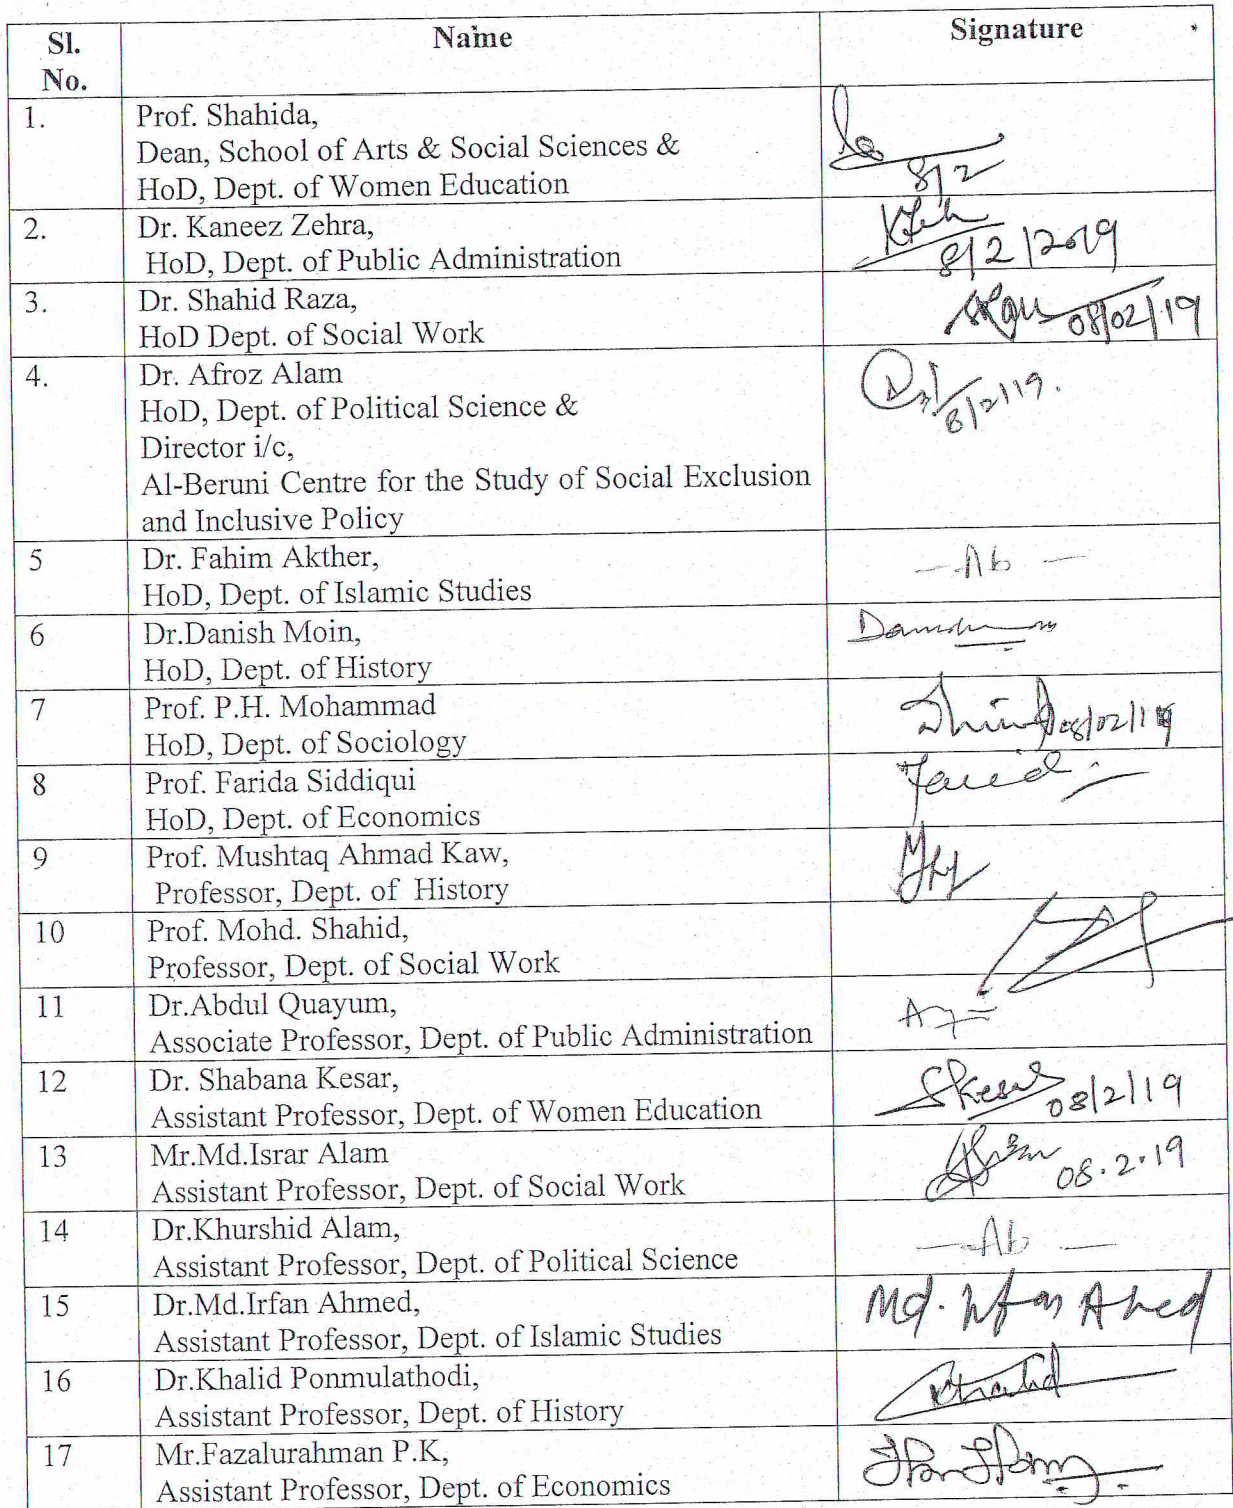 Sl. No. Name Signature
1. Prof. Shahida,
Dean, School of Arts & Social Sciences &
HoD, Dept. of Women Education
8/2
2. Dr. Kaneez Zehra,
HoD, Dept. of Public Administration
8/2/2019
3. Dr. Shahid Raza,
HoD Dept. of Social Work
08/02/19
4. Dr. Afroz Alam
HoD, Dept. of Political Science &
Director i/c,
Al-Beruni Centre for the Study of Social Exclusion
and Inclusive Policy
8/2/19.
5 Dr. Fahim Akther,
HoD, Dept. of Islamic Studies
— Ab —
6 Dr.Danish Moin,
HoD, Dept. of History
7 Prof. P.H. Mohammad
HoD, Dept. of Sociology
08/02/19
8 Prof. Farida Siddiqui
HoD, Dept. of Economics
9 Prof. Mushtaq Ahmad Kaw,
Professor, Dept. of History
10 Prof. Mohd. Shahid,
Professor, Dept. of Social Work
11 Dr.Abdul Quayum,
Associate Professor, Dept. of Public Administration
12 Dr. Shabana Kesar,
Assistant Professor, Dept. of Women Education
SKesar 08/2/19
13 Mr.Md.Israr Alam
Assistant Professor, Dept. of Social Work
08.2.19
14 Dr.Khurshid Alam,
Assistant Professor, Dept. of Political Science
— Ab —
15 Dr.Md.Irfan Ahmed,
Assistant Professor, Dept. of Islamic Studies
Md. Irfan Ahed
16 Dr.Khalid Ponmulathodi,
Assistant Professor, Dept. of History
Khalid
17 Mr.Fazalurahman P.K,
Assistant Professor, Dept. of Economics